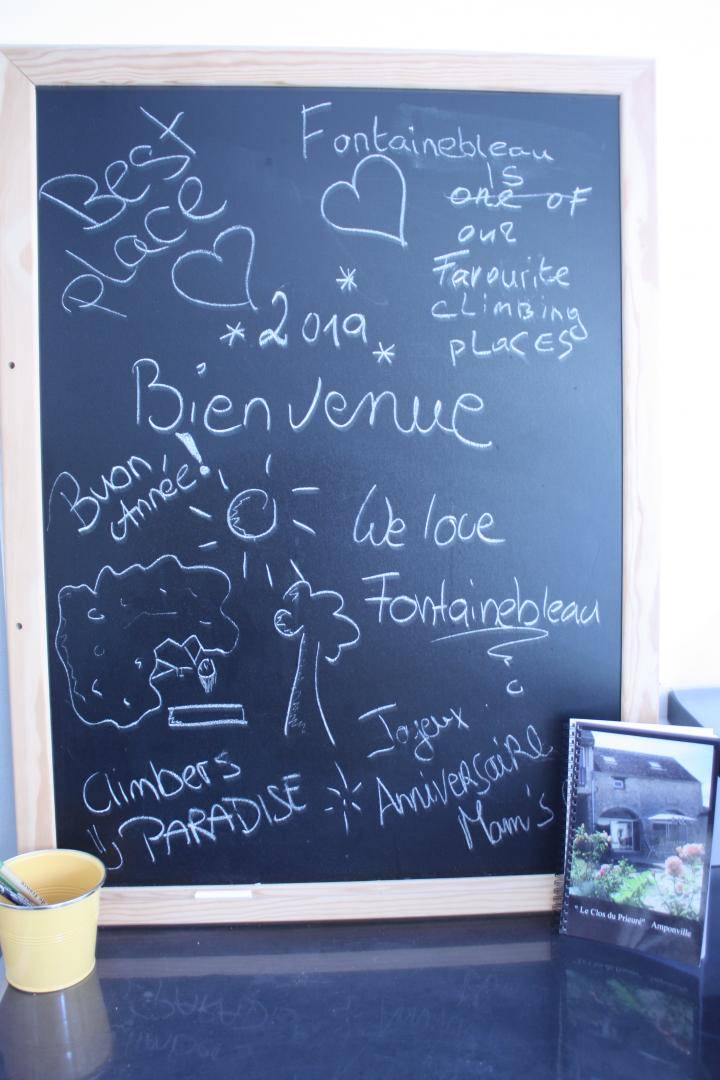 Best
place
Fontainebleau
IS
one of
our
Favourite
CLIMBING
PLACES
2019
Bienvenue
Buon
Année!
We love
Fontainebleau
Climbers
PARADISE
Joyeux
ANNIVERSAIRE
Mam's
" Le Clos du Prieuré" Amponville